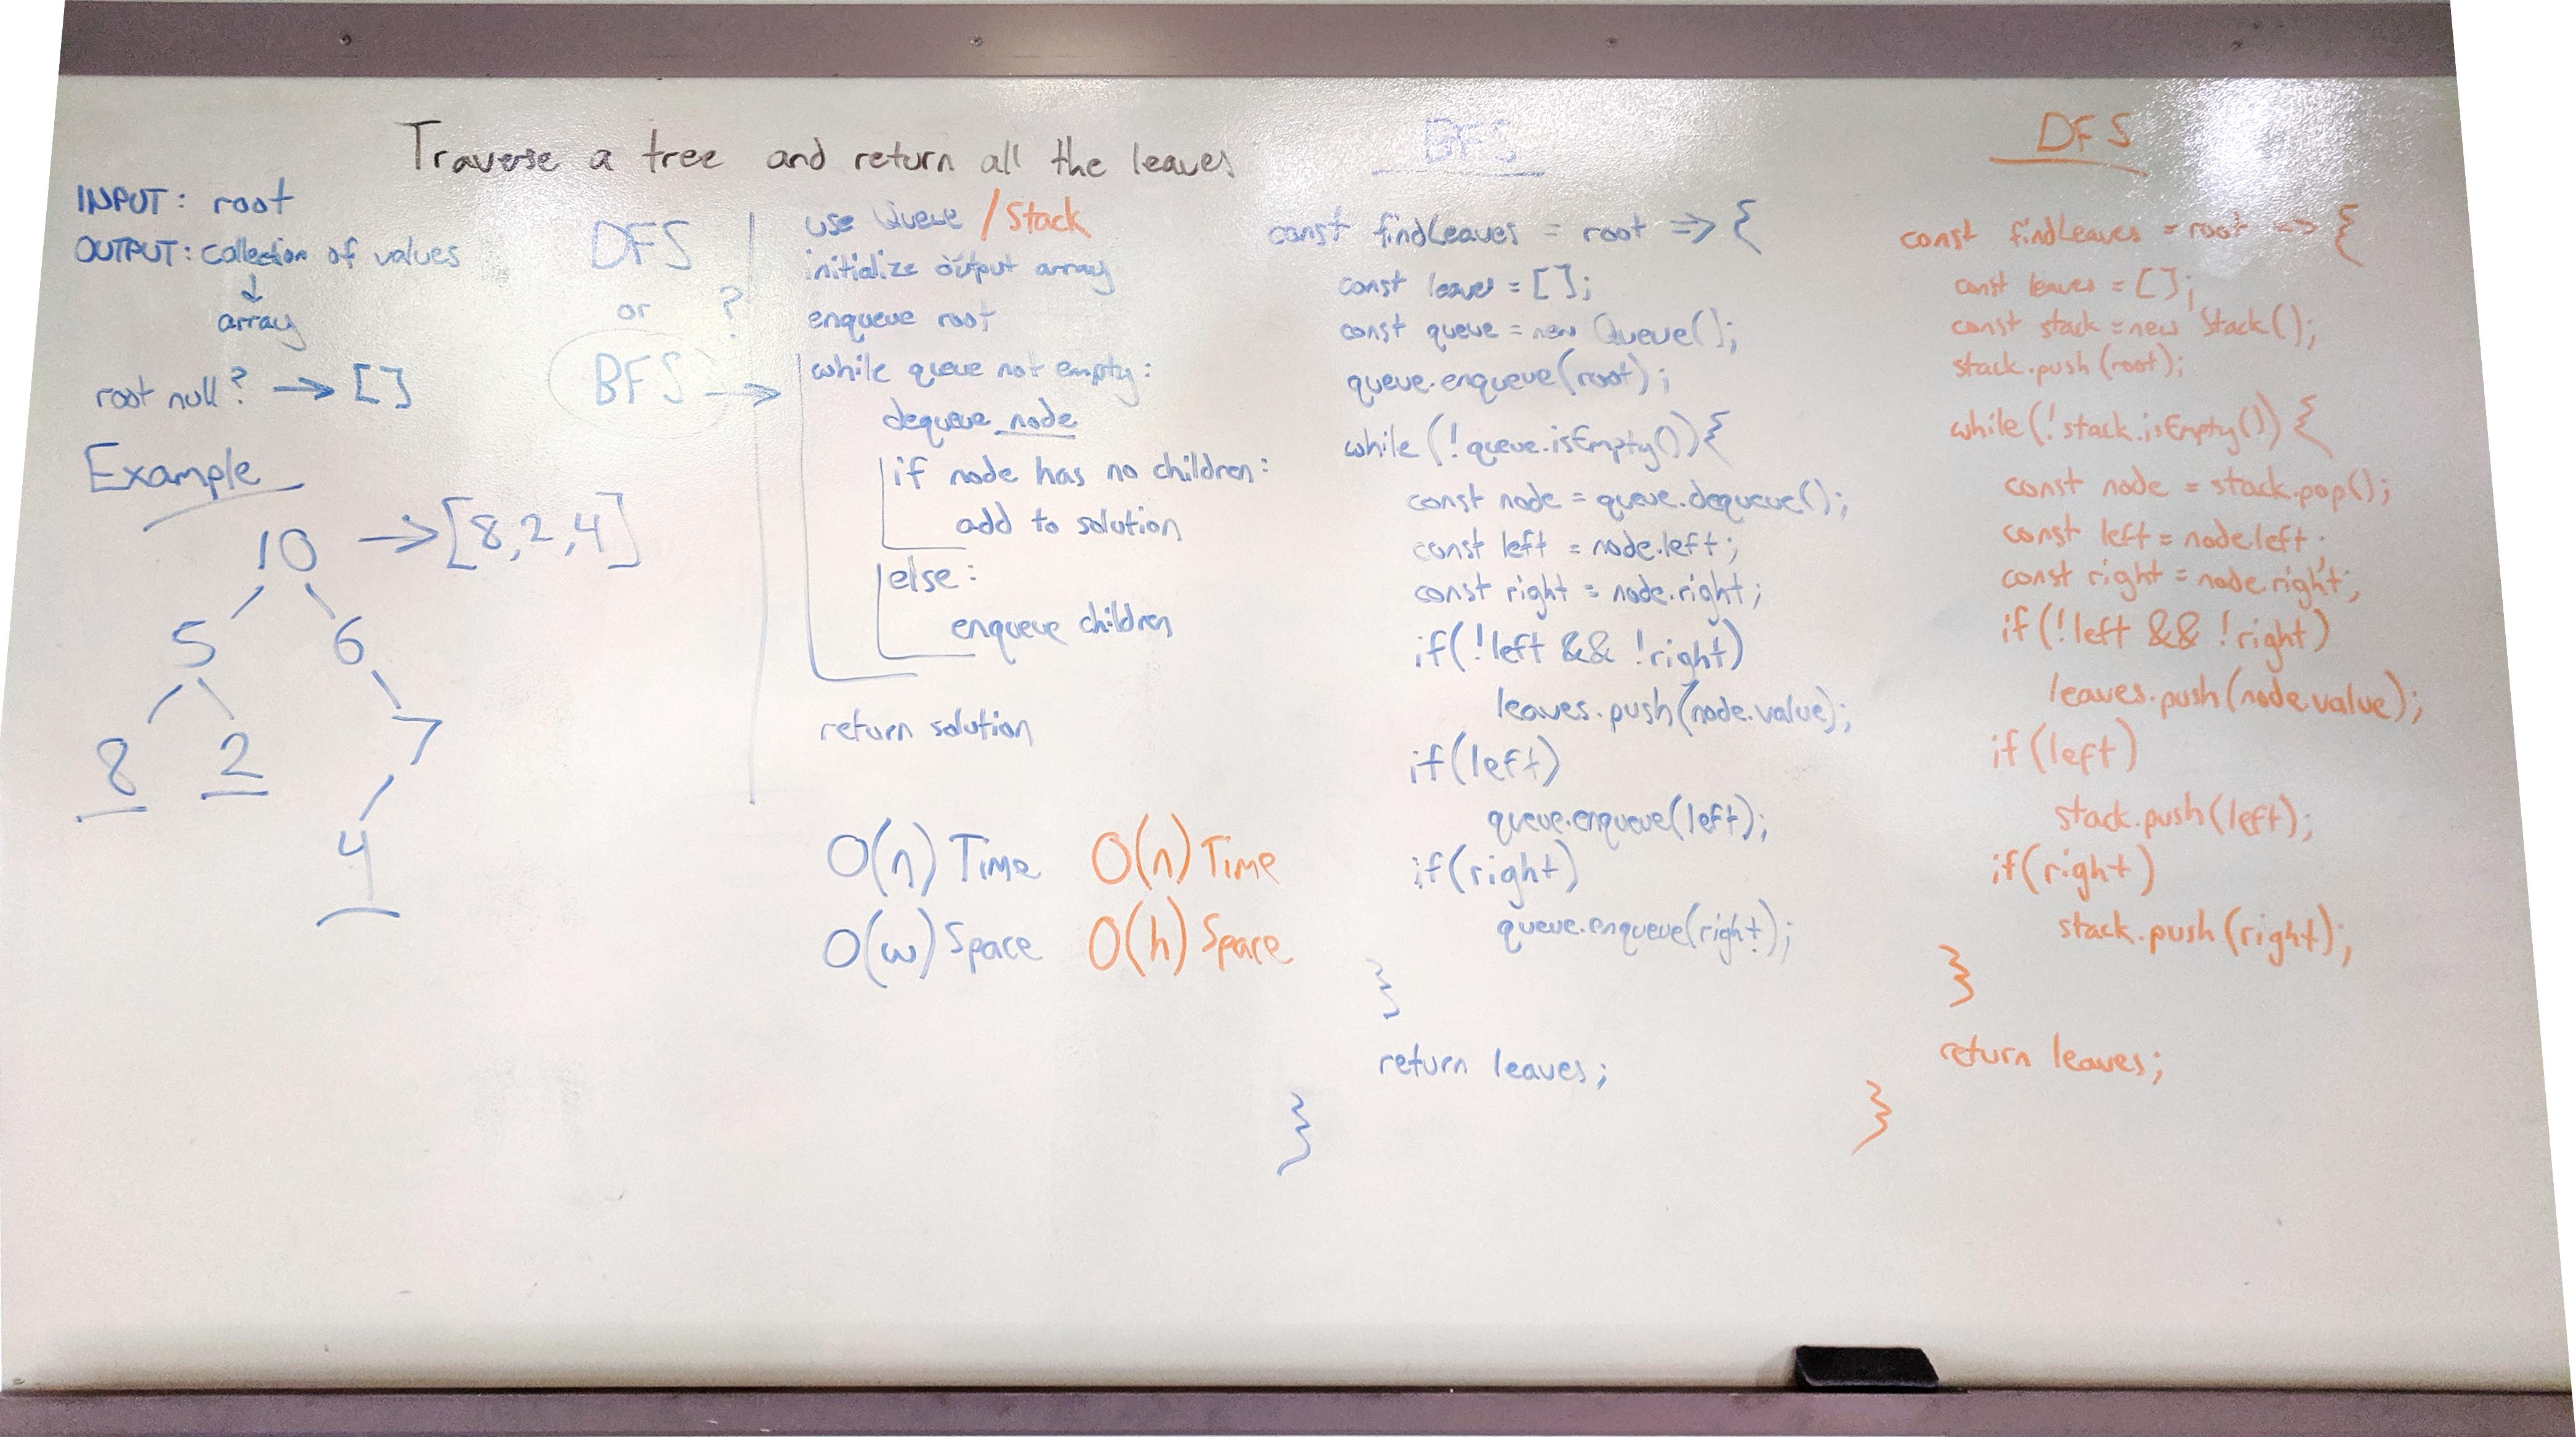 Traverse a tree and return all the leaves
INPUT: root
OUTPUT: collection of values
array
root null? → []
Example
10 → [8,2,4]
5 6
8 2 7
4
DFS
or ?
BFS →
use Queue / Stack
initialize output array
enqueue root
while queue not empty:
dequeue node
if node has no children:
add to solution
else:
enqueue children
return solution
O(n) Time O(n) Time
O(w) Space O(h) Space
BFS
const findLeaves = root => {
const leaves = [];
const queue = new Queue();
queue.enqueue(root);
while (!queue.isEmpty()){
const node = queue.dequeue();
const left = node.left;
const right = node.right;
if(!left && !right)
leaves.push(node.value);
if(left)
queue.enqueue(left);
if(right)
queue.enqueue(right);
}
return leaves;
}
DFS
const findLeaves = root => {
const leaves = [];
const stack = new Stack();
stack.push(root);
while(!stack.isEmpty()) {
const node = stack.pop();
const left = node.left;
const right = node.right;
if(!left && !right)
leaves.push(node.value);
if(left)
stack.push(left);
if(right)
stack.push(right);
}
return leaves;
}